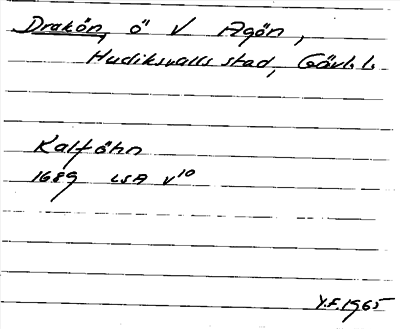 Drakön, ö V Agön,
Hudiksvalls stad, Gävl. l.
Kalföhn
1689 LSA V10
Y.F. 1965